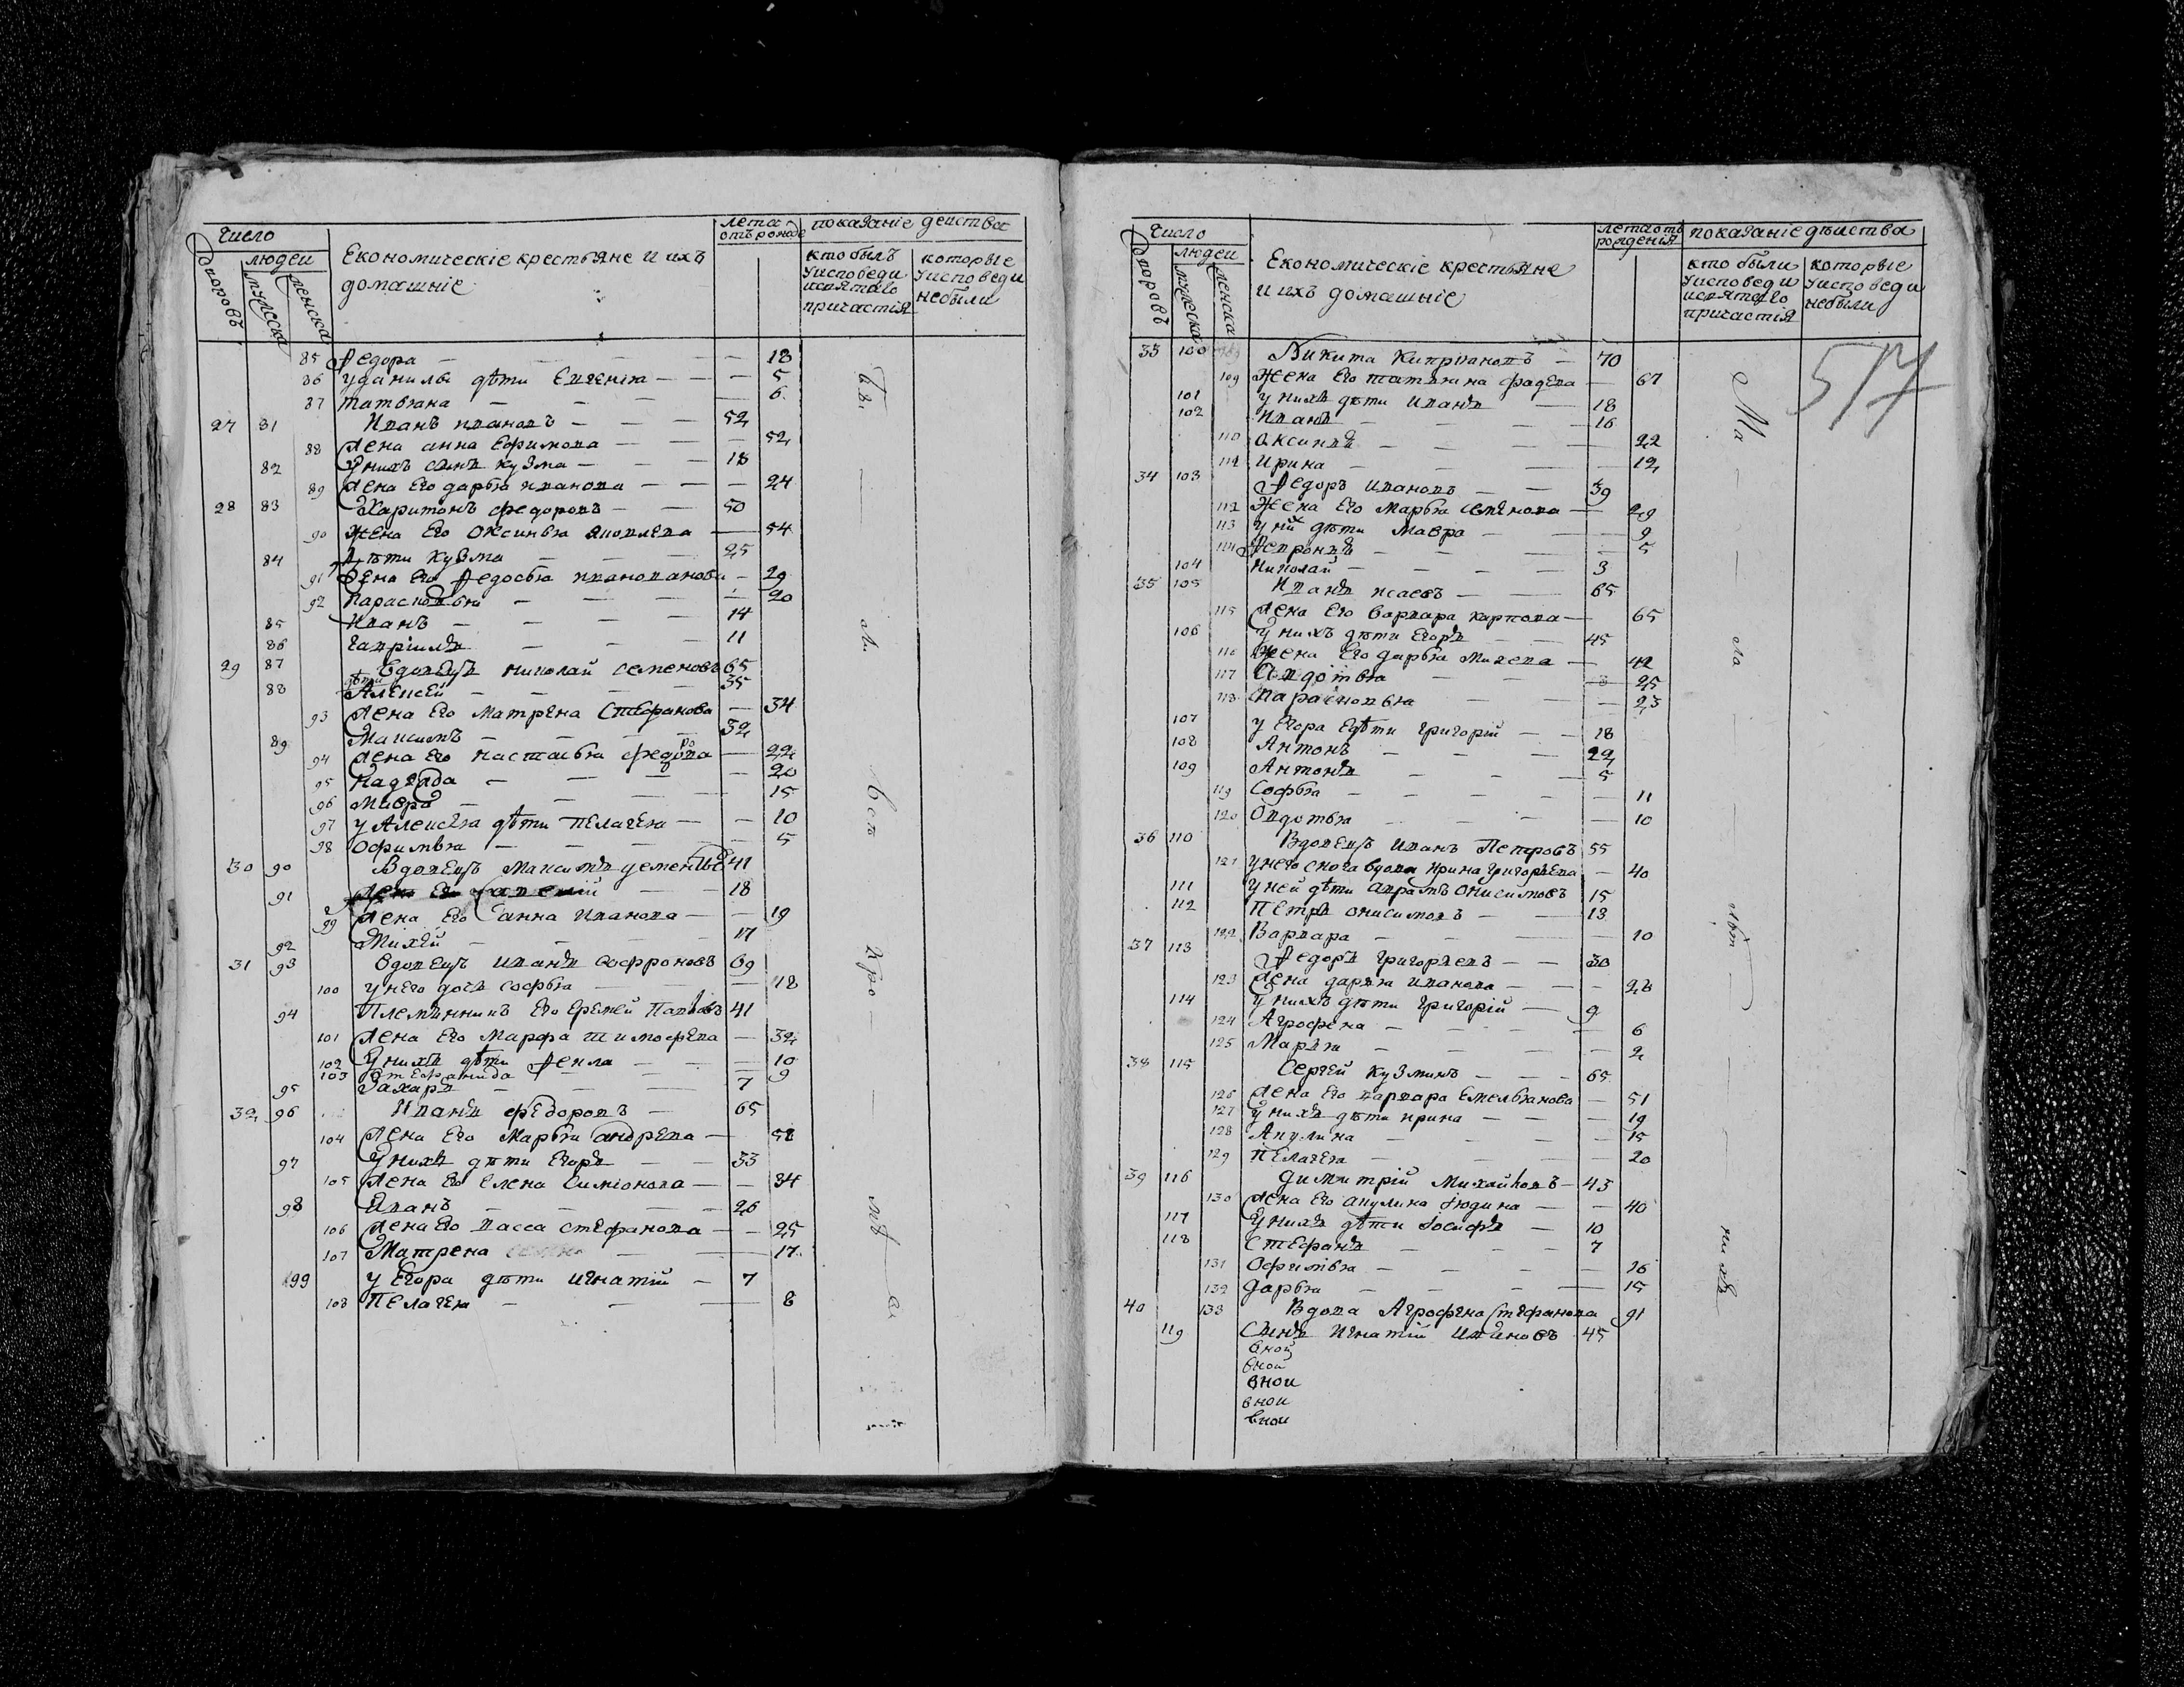 число
лета
отъ рожде
показаніе действа
дворовъ
людей
мужеска
женска
Економическіе крестьяне и ихъ
домашніе
кто былъ
уисповеди
исвятаго
причастія
которые
уисповеди
небыли
85 Федора — — 18
86 уданилы дѣти Евгенія — — 5
87 татьяна — — 6
27 81 Иванъ ивановъ — — 52
88 жена анна Ефимова — — 52
82 унихъ сынъ кузма — — 18
89 жена Его дарья иванова — — 24
28 83 Харитонъ федоровъ — — 50
90 жена Его оксинья — 54
84 дѣти кузма — — 25
91 жена Его Федосья — 29
92 парасковья — — 20
85 Иванъ — — 14
86 гаврiилъ — — 11
29 87 вдовецъ николай семеновъ 65
88 дѣти Алексей — — 35
93 жена Его матрена Стефанова — 34
89 Максимъ — — 32
94 жена Его настасья федорова — 22
95 надежда — — 20
96 Мавра — — 15
97 у Алексея дѣти пелагея — — 10
98 офимья — — 5
30 90 Вдовецъ Максимъ дементьевъ 41
91 — 18
99 жена Его анна Иванова — — 19
92 Михей — — 17
31 93 вдовецъ иванъ софроновъ 69
100 унего дочь софья — — 18
94 Племянникъ Его Еремей Павловъ 41
101 жена Его Марфа тимофева — 32
102 унихъ дѣти Фекла — — 10
103 степанида — 9
95 Захаръ — — 7
32 96 Иванъ федоровъ — 65
104 жена Его Марья андрева — 58
97 унихъ дѣти Егоръ — — 33
105 жена Его Елена Симіонова — — 34
98 Иванъ — — 26
106 жена Его васса стефанова — — 25
107 Матрена — — 17
99 у Егора дѣти игнатій — 7
108 Пелагея — — 8
число
лета отъ
рожденія
показаніе дѣиства
дворовъ
людей
мужеска
женска
Економическіе крестьяне
и ихъ домашніе
кто были
уисповеди
исвятаго
причастія
которые
уисповеди
небыли
517
33 100 Никита Кипріяновъ — 70
109 жена Его татьяна фадева — 67
101 унихъ дѣти иванъ — 18
102 Иванъ — — 16
110 аксинья — — 22
111 Ирина — — 12
34 103 Федоръ ивановъ — — 39
112 жена Его Марья семенова — 29
113 у ни дѣти Мавра — — 9
114 — 5
104 николай — — 3
35 105 Иванъ исаевъ — — 65
115 жена Его варвара карпова — 65
106 унихъ дѣти Егоръ — 45
116 жена Его дарья михева — 42
117 Авдотья — — 25
118 парасковья — — 23
107 у Егора дѣти григорій — — 18
108 Антонъ — — 22
109 Антонъ — — 5
119 Софья — — 11
120 овдотья — — 10
36 110 Вдовецъ иванъ Петровъ 55
121 унего сноха вдова ирина григорьева — 40
111 уней дѣти аврамъ онисимовъ 15
112 Петръ онисимовъ — — 13
122 Варвара — — 10
37 113 Федоръ григорьевъ — — 30
123 жена дарья иванова — — 28
114 унихъ дѣти григорій — 9
124 Агрофена — — 6
125 Марья — — 2
38 115 Сергей кузминъ — — 65
126 жена Его варвара Емельянова — 51
127 унихъ дѣти ирина — — 19
128 Акулина — — 15
129 пелагея — — 20
39 116 димитрій михайловъ — 43
130 жена Его акулина іюдина — — 40
117 унихъ дѣти іосифъ — 10
118 Стефанъ — — 7
131 офимья — — 26
132 дарья — — 15
40 133 Вдова Агрофена Стефанова 91
119 Сынъ игнатій ивановъ 45
вной
вной
вной
вной
вной